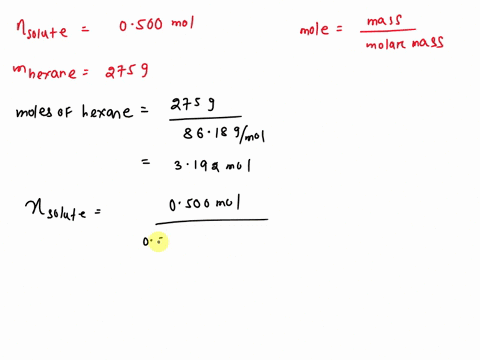 η solute = 0.500 mol
mole = mass / molar mass
m hexane = 275 g
moles of hexane = 275 g / 86.18 g/mol
= 3.192 mol
χ solute = 0.500 mol /
0.5